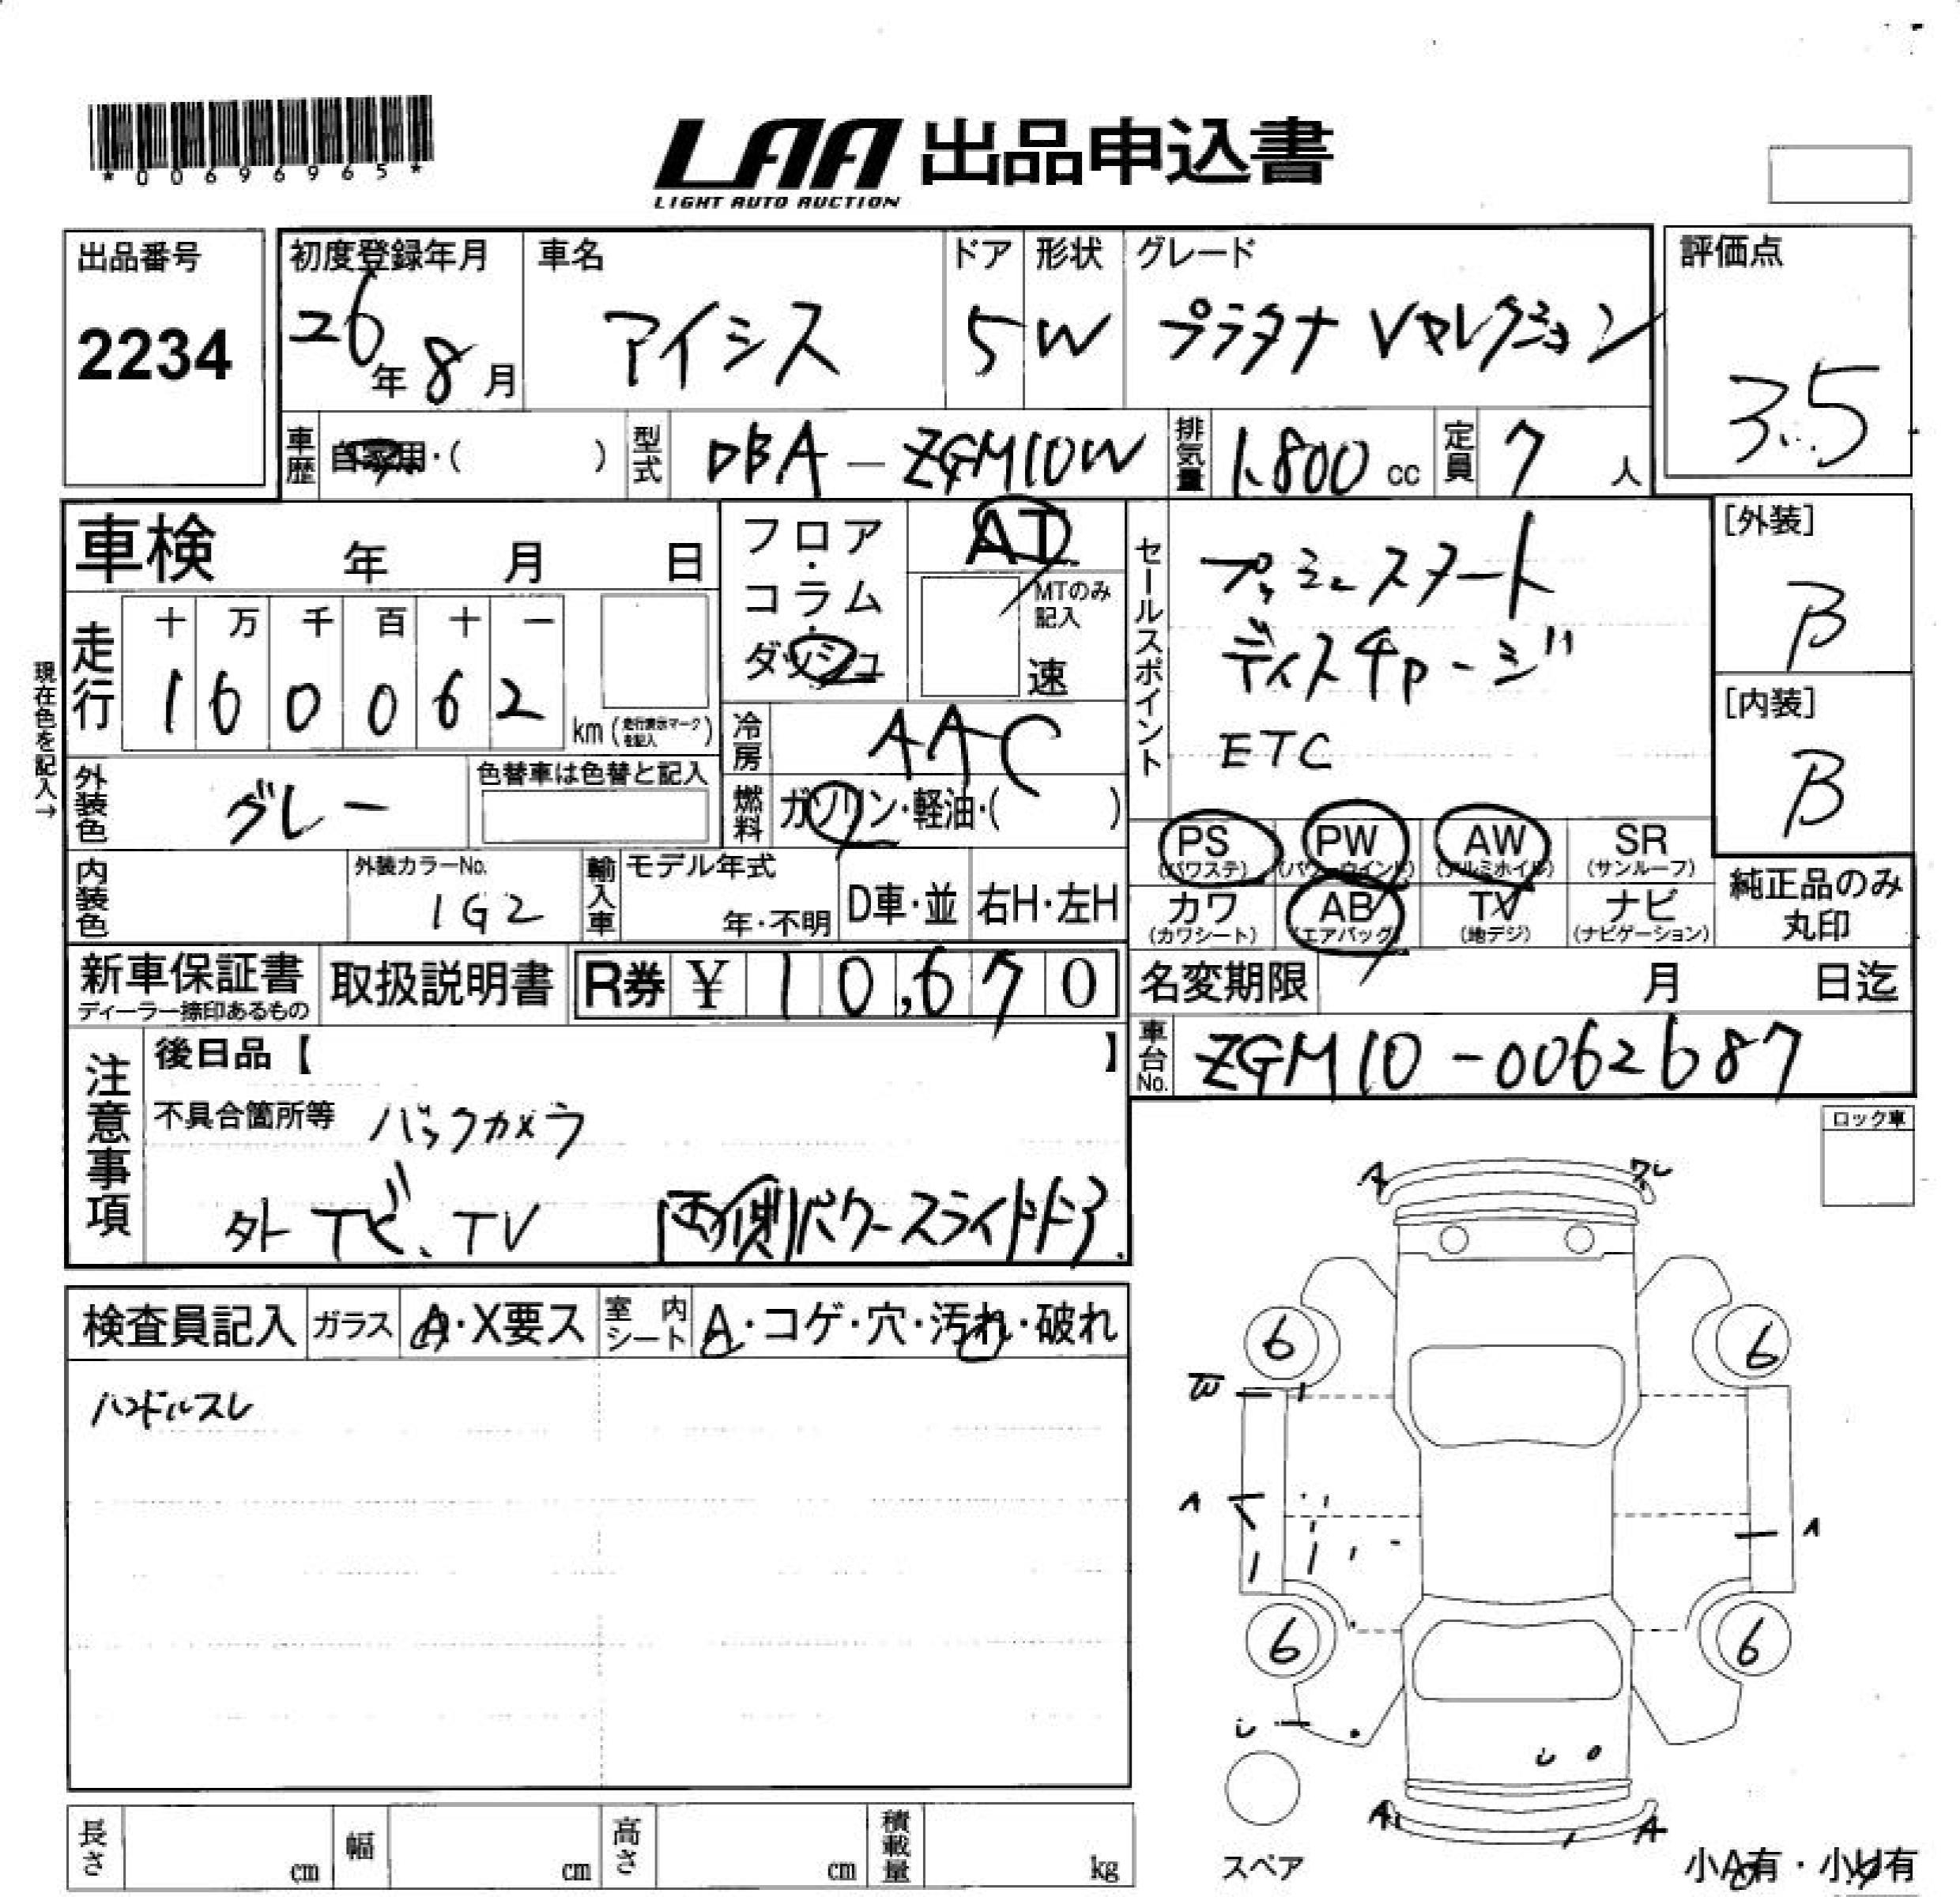 *00696965*
LAA 出品申込書
LIGHT AUTO AUCTION
出品番号
2234
初度登録年月
26年8月
車名
アイシス
ドア
5
形状
W
グレード
プラタナ Vセレクション
評価点
3.5
車歴
自家用・( )
型式
DBA-ZGM10W
排気量
1,800cc
定員
7人
車検 年 月 日
フロア・コラム・ダッシュ
AT
MTのみ記入
速
セールスポイント
プッシュスタート
ディスチャージ
ETC
[外装]
B
[内装]
B
現在色を記入→
走行
十 万 千 百 十 一
1 6 0 0 6 2
km(走行表示マークを記入)
冷房
AAC
外装色
グレー
色替車は色替と記入
燃料
ガソリン・軽油・( )
PS
(パワステ)
PW
(パワーウインド)
AW
(アルミホイル)
SR
(サンルーフ)
カワ
(カワシート)
AB
(エアバッグ)
TV
(地デジ)
ナビ
(ナビゲーション)
純正品のみ
丸印
内装色
外装カラーNo.
1G2
輸入車
モデル年式
年・不明
D車・並
右H・左H
新車保証書
ディーラー捺印あるもの
取扱説明書
R券 ¥ 10,670
名変期限 月 日迄
車台No.
ZGM10-0062687
注意事項
後日品【 】
不具合箇所等 バックカメラ
外ナビ、TV 両側パワースライドドア
ロック車
検査員記入
ガラス
A・X要ス
室内シート
A・コゲ・穴・汚れ・破れ
ハンドルスレ
A
6
6
A
A
6
6
A
A
スペア
小A有・小U有
長さ cm
幅 cm
高さ cm
積載量 kg